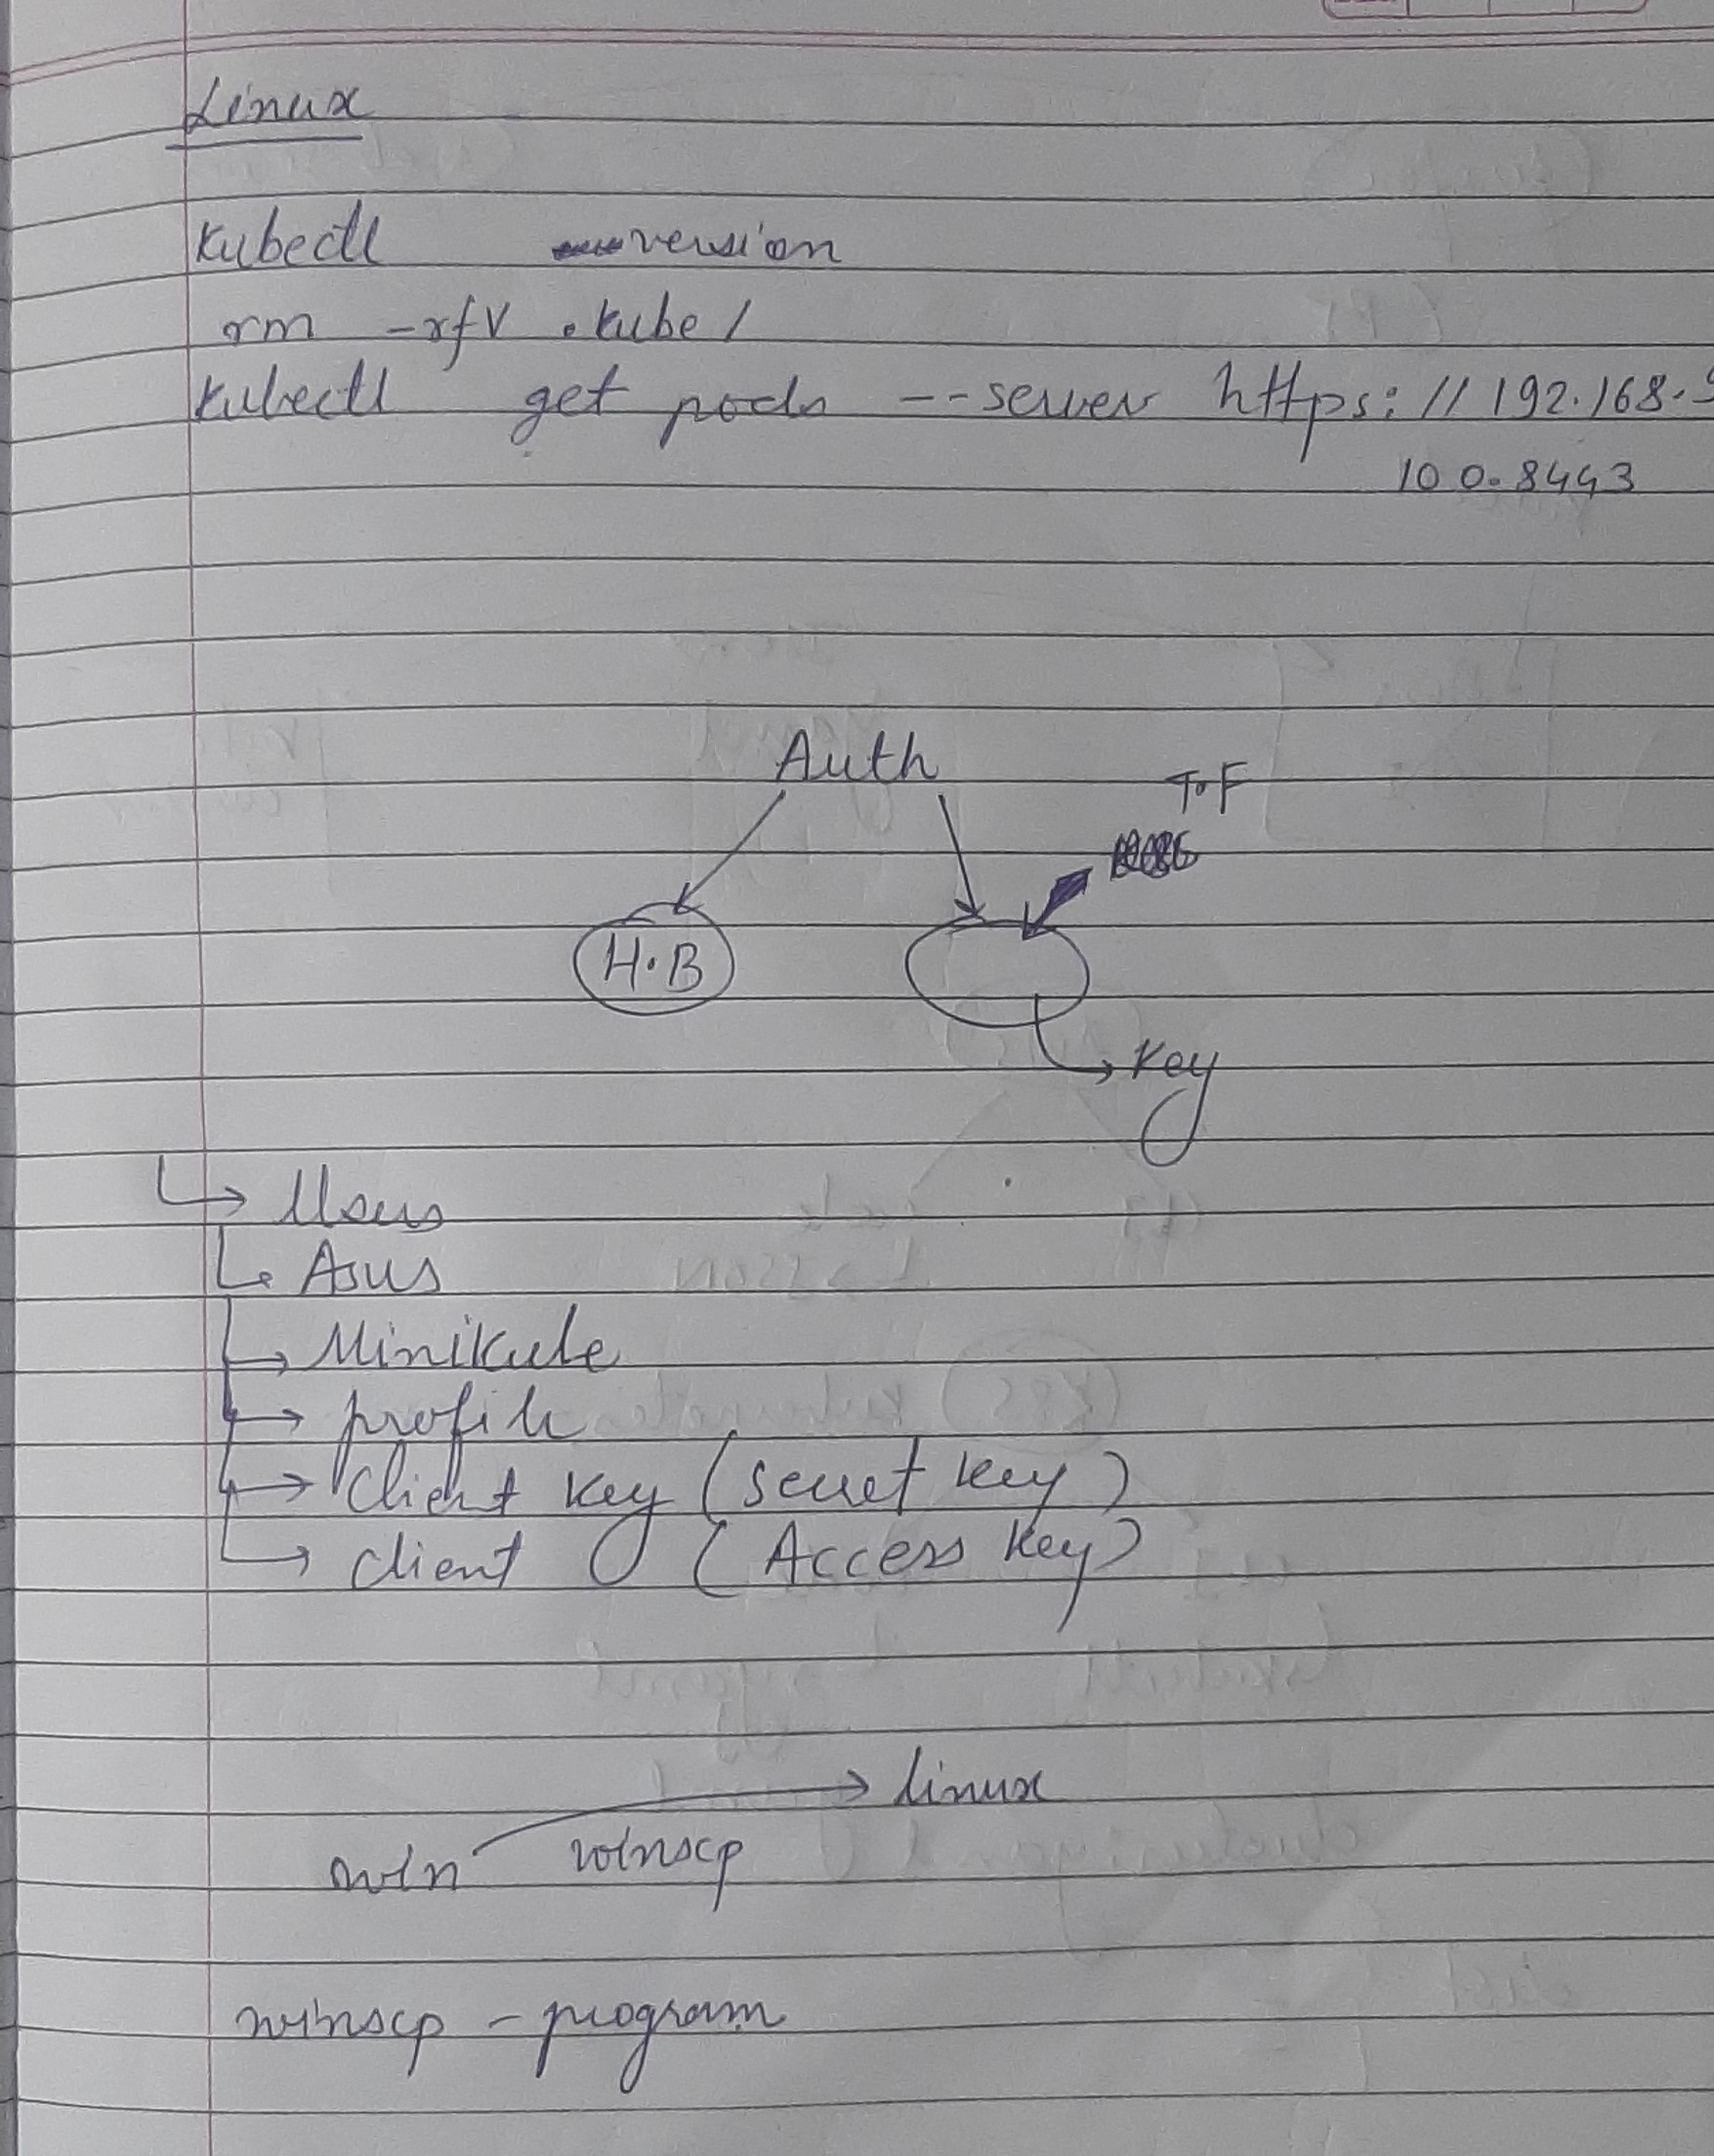 Linux
kubectl version
rm -rfv .kube/
kubectl get pods --server https://192.168.
100.8443
Auth
T.F
H.B
Key
Users
Asus
Minikube
profile
Client key (Secret key)
client (Access key)
linux
win winscp
winscp - program